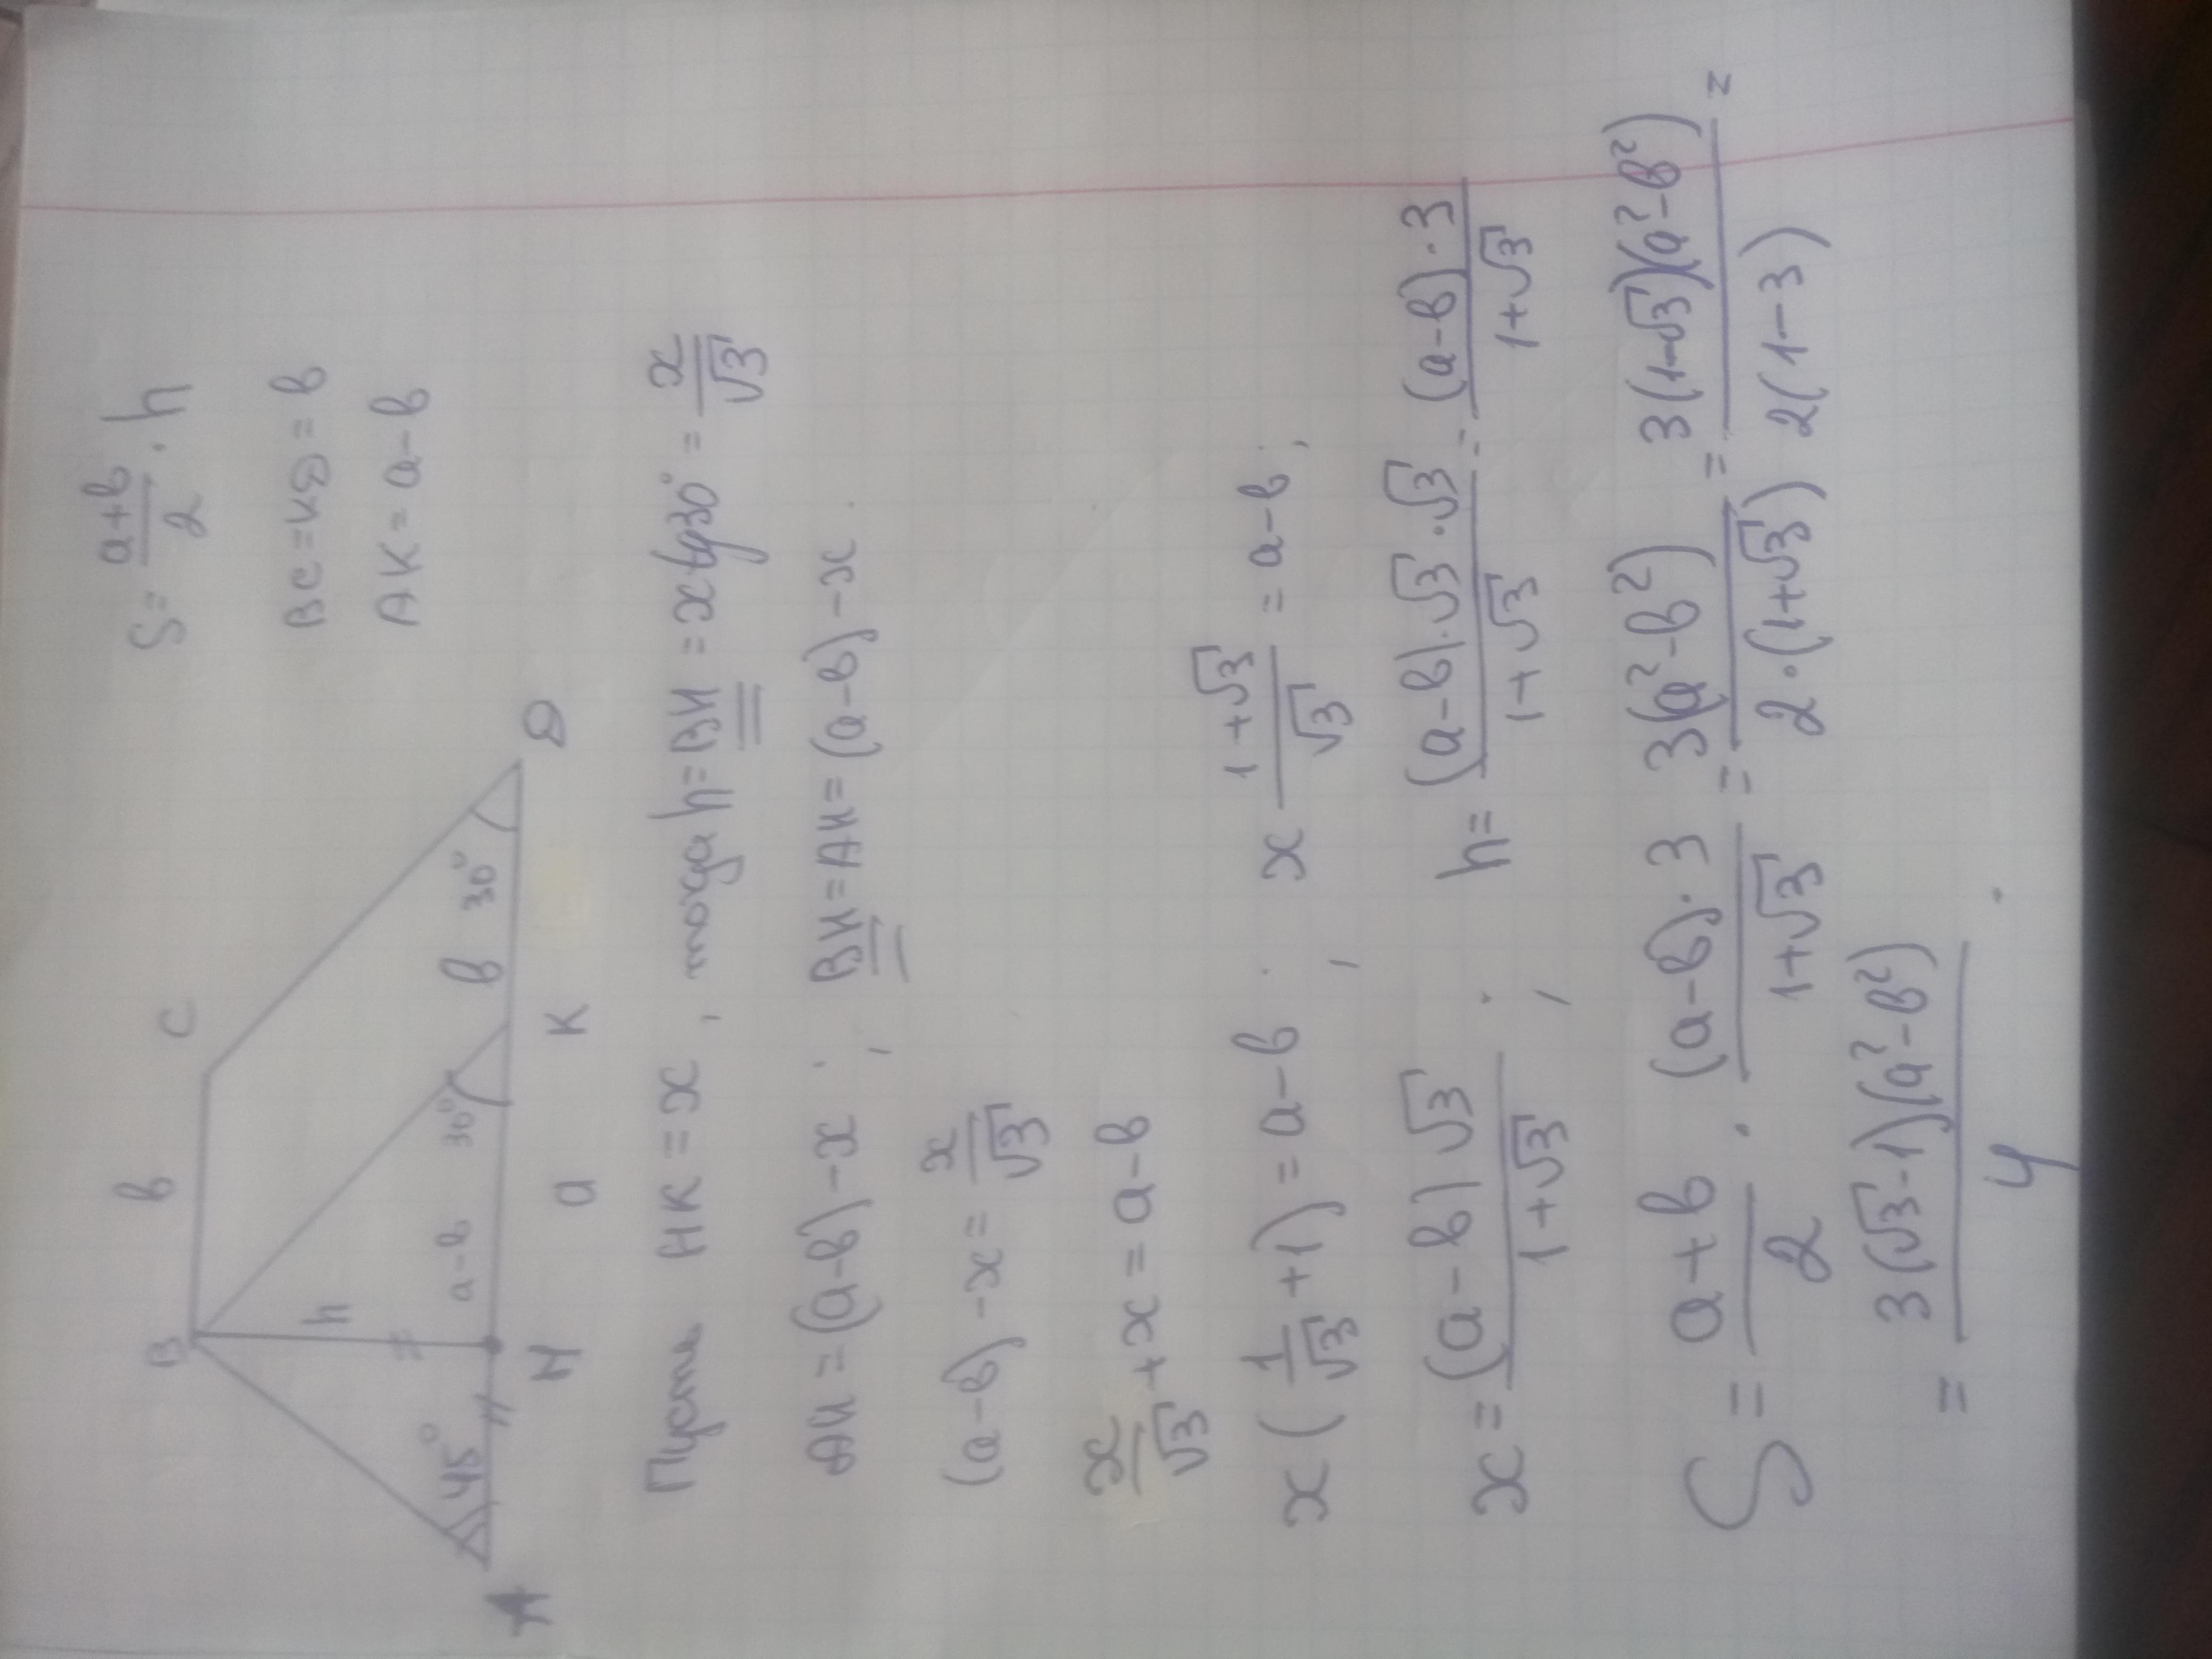 S = (a+b)/2 · h
B b C
BC = KD = b
AK = a-b
h
45° a-b 30° b 30°
A H a K D
Пусть HK = x, тогда h = BH = x tg30° = x/√3
AH = (a-b) - x ; BH = AH = (a-b) - x .
(a-b) - x = x/√3
x/√3 + x = a-b
x(1/√3 + 1) = a-b ; x (1+√3)/√3 = a-b ;
x = (a-b)√3/(1+√3) ; h = (a-b)·√3·√3/(1+√3) = (a-b)·3/(1+√3)
S = (a+b)/2 · (a-b)·3/(1+√3) = 3(a²-b²)/(2·(1+√3)) = 3(1-√3)(a²-b²)/(2(1-3)) =
= 3(√3-1)(a²-b²)/4 .